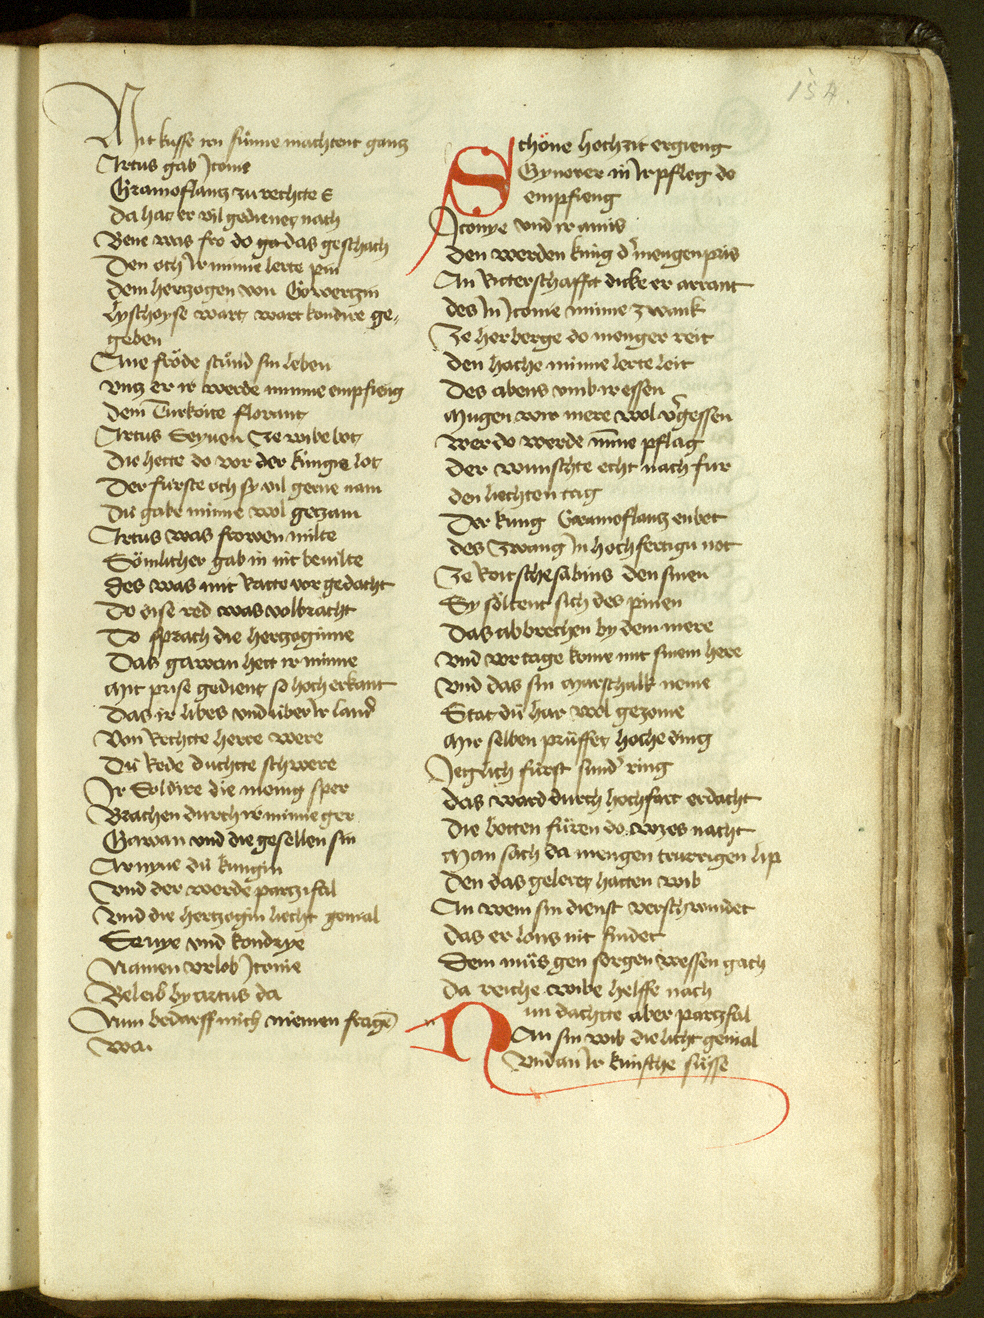 154
Mit kusse ein sünne machtent gantz
Artus gab Itonie
Gramoflantz zu rechtte E
Da hat er vil gedienet nach
Bene was fro do ga das geschach
Den och Ir minne lerte pin
dem hertzogen von Gowertzin
lyschoyse wart wart kondire ge-
geben
Ane fröde stünd sin leben
vntz er ir werde minne empfieng
dem Turkoite florant
Artus Seyuen Ze wibe bot
Die hette do vor der küngis lot
Der fürste och sy vil gerne nam
Dü gabe minne wol gezam
Artus was frowen milte
Sömlicher gab in nit beuilte
des was mit Ratte vor gedacht
Do dise red was volbracht
Do sprach die hertzoginne
Das gawan hett ir minne
Mit prise gedient so hoch erkant
Das ir libes vnd über Ir land
Von Rechtte herre were
Dü Rede duchtte schwere
Ir Soldire die menig sper
Brachen durch ir minne ger
Gawan vnd die gesellen sin
Arnyue dü küngin
Vnd der werde partzifal
Vnd die hertzogin liecht gemal
Seruye vnd kondrye
Namen vrlob Itonie
Beleib by artus da
Nun bedarff mich niemen frage
wa.
Schöne hochzit ergieng
Gynover in Ir pfleg do
empfieng
Itonye vnd ir amis
Den werden küng d' mengen pris
An Ritterschafft dicke er arrant
des In Itonie minne zwank
Ze herberge do menger reit
den hoche minne lerte leit
Des abens vmb ir essen
Mugen wir mere wol v'gessen
Wer do werde minne pflag
Der wunschte echt nach für
den liechten tag
Der kung Gramoflantz enbot
des Zwang In hochfertigu not
Ze Roitschesabins den sinen
Sy söltent sich des pinen
Das abbrechen by dem mere
Vnd vor tage kome mit sinem here
Vnd das sin Marschalk neme
Stat dü har wol gezome
Mir selben prüffet hoche ding
Ietzlich fürst sund' ring
das ward durch hochfart erdacht
Die botten füren do. wzes nacht
Man sach da mengen trurrigen lip
Den das geleret hatten wib
An wem sin dienst verschwindet
das er lons nit findet
Dem müs gen sorgen wessen gach
da reiche wibe helffe nach
Nun dachtte aber partzifal
An sin wib die licht gemal
Vnd an Ir künsche süsse